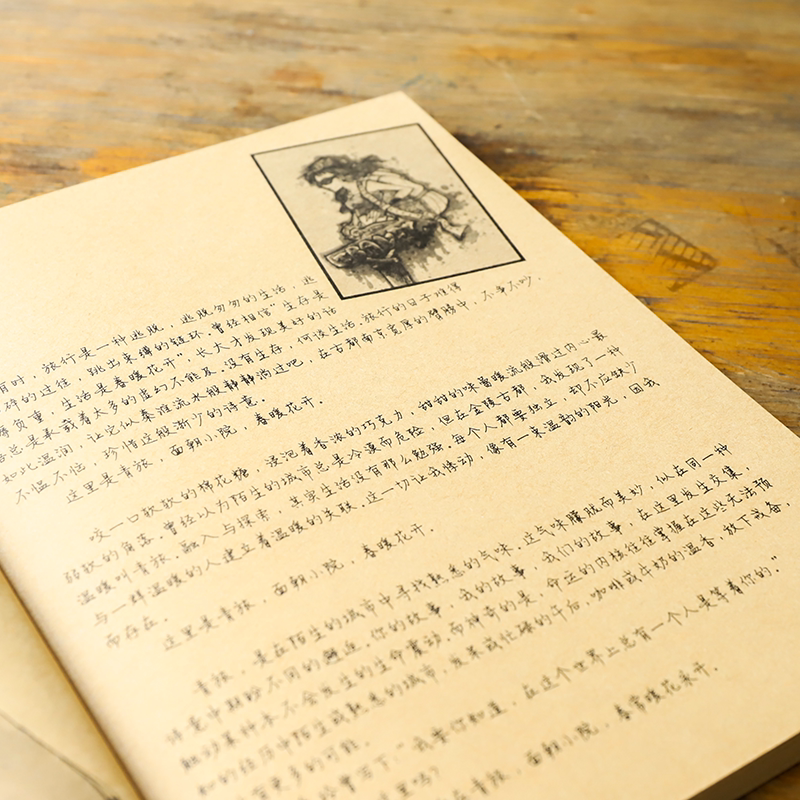 有时，旅行是一种逃脱，逃脱匆匆的生活，逃
碎的过往，跳出束缚的链环。曾经相信"生存是
负重，生活是春暖花开"，长大才发现美好的话
总是承载着太多的虚幻不能及，没有生存，何谈生活。旅行的日子难得
如此温润，让它似秦淮流水般静静淌过吧，在古都南京宽厚的臂膀中，不争不吵，
不愠不恼，珍惜这般渐少的诗意。
这里是青旅，面朝小院，春暖花开。
咬一口软软的棉花糖，浸泡着香浓的巧克力，甜甜的味蕾暖流般滑过内心最
弱软的角落。曾经以为陌生的城市总是冷漠而危险，但在金陵古都，我发现了一种
温暖叫青旅。融入与探索，其实生活没有那么勉强。每个人都要独立，却不应缺少
与一群温暖的人建立着温暖的关联。这一切让我悸动，像有一束温韵的阳光，因我
而存在。
这里是青旅，面朝小院，春暖花开。
青旅，是在陌生的城市中寻找熟悉的气味。这气味朦胧而美妙，似在同一种
诗意中期盼不同的邂逅。你的故事，我的故事，我们的故事，在这里发生交集，
触动某种本不会发生的生命震动。而神奇的是，命运的内核往往掌握在这些无法预
知的经历中。陌生或熟悉的城市，发呆或忙碌的午后，咖啡或牛奶的温香，放下戒备，
有更多的可能。
曾写下："我要你知道，在这个世界上总有一个人是等着你的。"
里吗？
在青旅，面朝小院，春宵暖花永开。